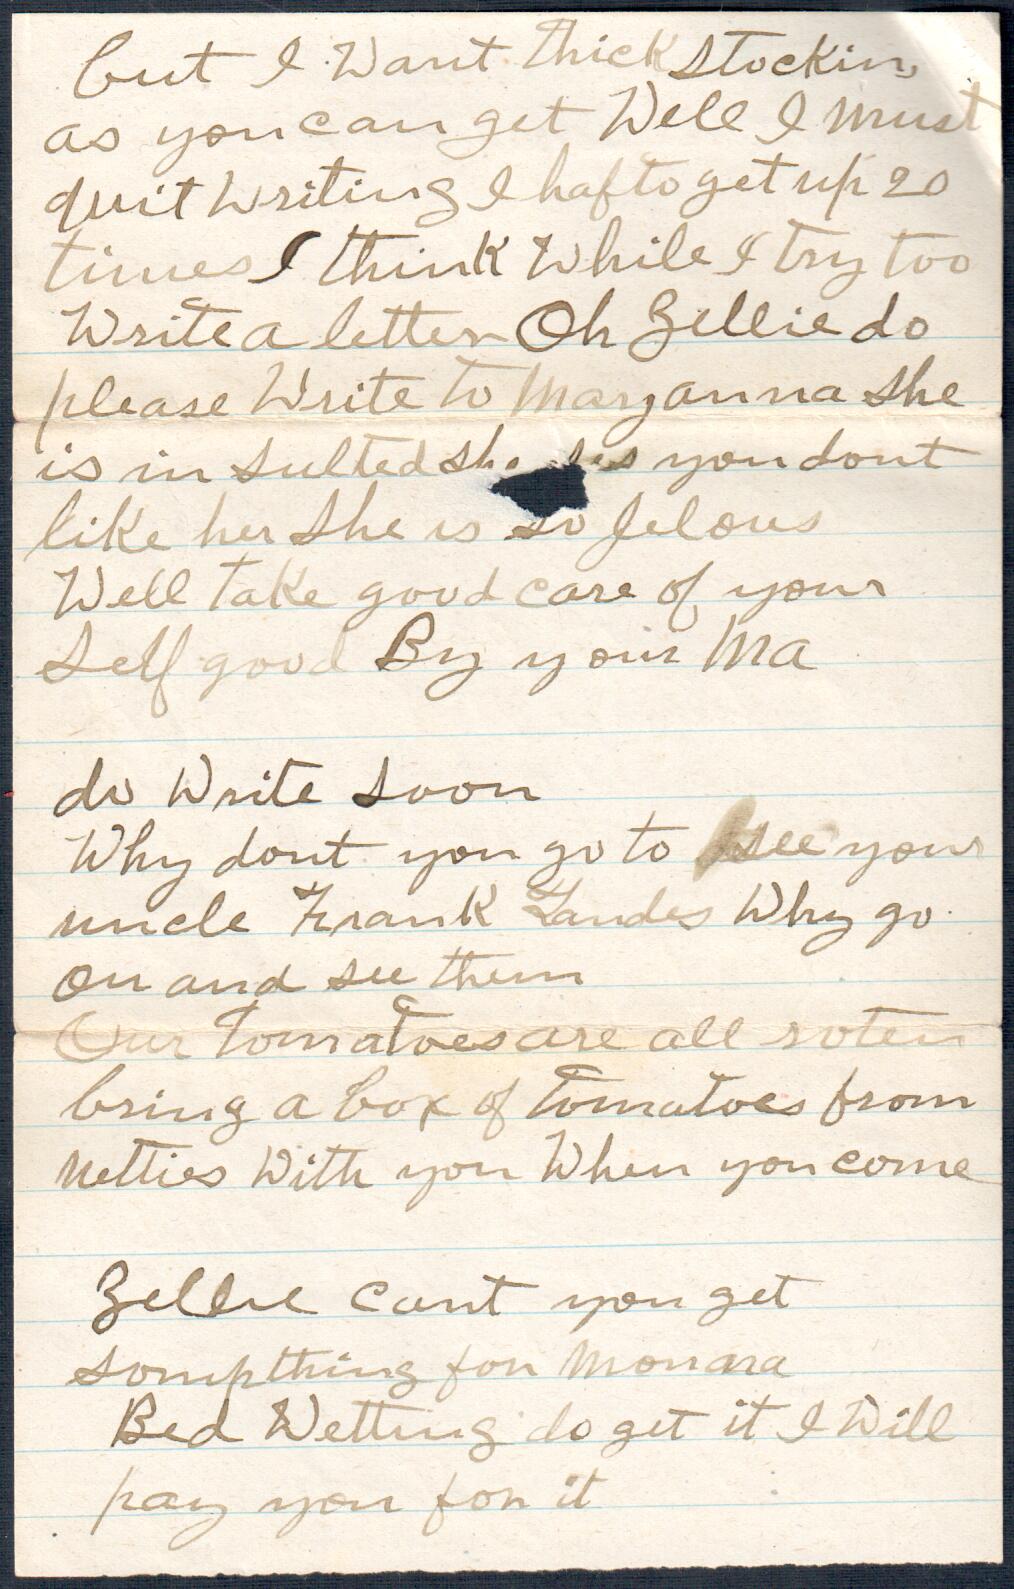 but I Want thick Stockin
as you can get Well I must
quit Writing I haf to get up 20
times I think While I try too
Write a letter Oh Zellie do
please Write to Maryanna She
is in sulted she you dont
like her She is so Jelous
Well take good care of your
Self good By your Ma
do Write Soon
Why dont you go to see your
uncle Frank Landes Why go
on and see them
Our Tomatoes are all roten
bring a box of Tomatoes from
Netties With you When you come
Zellie cant you get
sompthing for
Bed Wetting do get it I Will
pay you for it